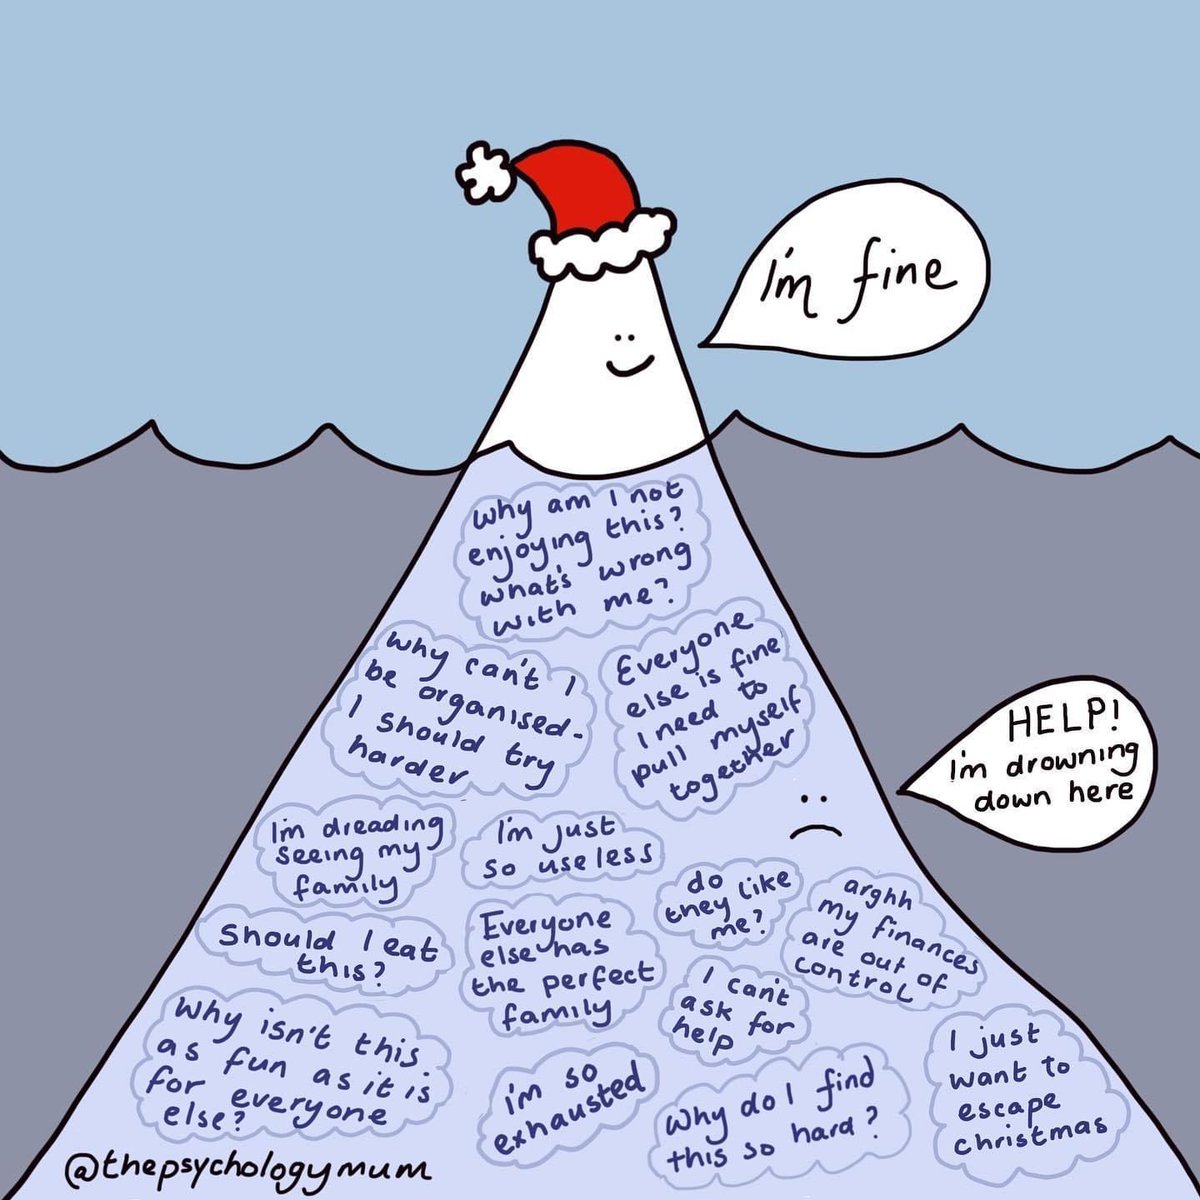 I'm fine
why am I not
enjoying this?
what's wrong
with me?
why can't I
be organised-
I should try
harder
Everyone
else is fine
I need to
pull myself
together
HELP!
I'm drowning
down here
I'm dreading
seeing my
family
I'm just
so useless
do
they like
me?
arghh
my finances
are out of
control
Should I eat
this?
Everyone
else has
the perfect
family
I can't
ask for
help
Why isn't this
as fun as it is
for everyone
else?
i'm so
exhausted
Why do I find
this so hard?
I just
want to
escape
christmas
@thepsychologymum